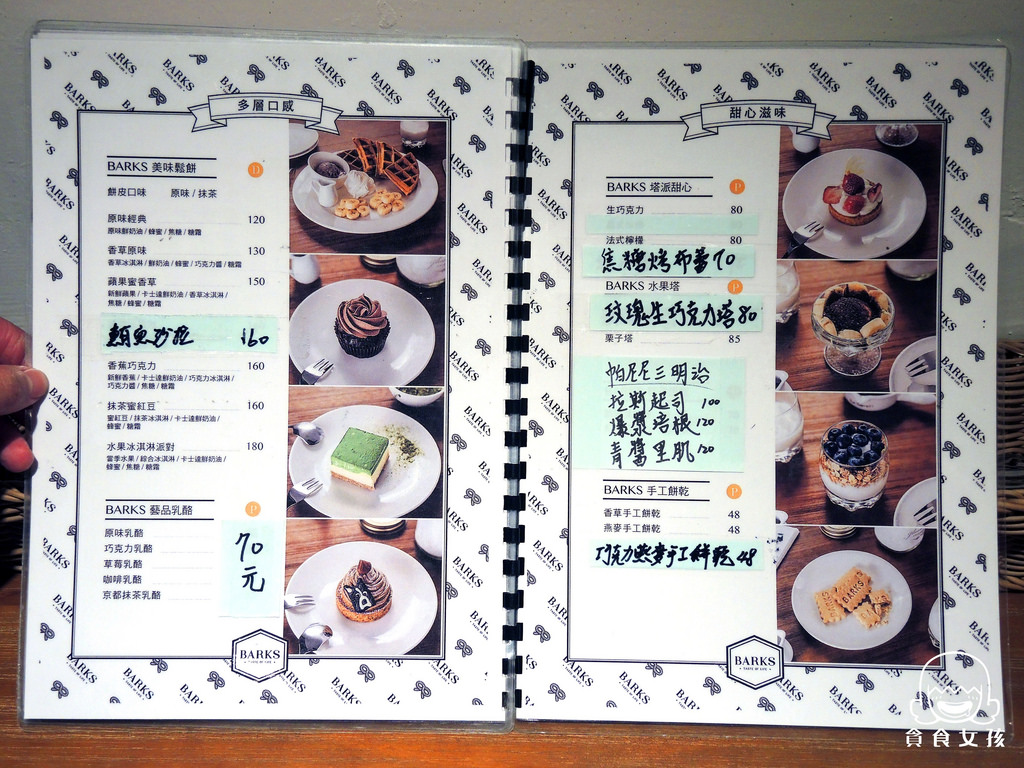 多層口感
BARKS 美味鬆餅
餅皮口味 原味 / 抹茶
原味經典 120
原味鮮奶油 / 蜂蜜 / 焦糖 / 糖霜
香草原味 130
香草冰淇淋 / 鮮奶油 / 蜂蜜 / 巧克力醬 / 糖霜
蘋果蜜香草 150
新鮮蘋果 / 卡士達鮮奶油 / 香草冰淇淋 /
焦糖 / 蜂蜜 / 糖霜
160
香蕉巧克力 160
新鮮香蕉 / 卡士達鮮奶油 / 巧克力冰淇淋 /
巧克力醬 / 焦糖 / 糖霜
抹茶蜜紅豆 160
蜜紅豆 / 抹茶冰淇淋 / 卡士達鮮奶油 /
蜂蜜 / 糖霜
水果冰淇淋派對 180
當季水果 / 綜合冰淇淋 / 卡士達鮮奶油 /
蜂蜜 / 焦糖 / 糖霜
BARKS 藝品乳酪 P
原味乳酪
巧克力乳酪
草莓乳酪
咖啡乳酪
京都抹茶乳酪
70
元
BARKS
TASTE OF LIFE
甜心滋味
BARKS 塔派甜心 P
生巧克力 80
法式檸檬 80
焦糖烤布蕾 70
BARKS 水果塔 P
玫瑰生巧克力塔 80
栗子塔 85
帕尼尼三明治
拉斯起司 100
爆漿培根 120
青醬里肌 120
BARKS 手工餅乾 P
香草手工餅乾 48
燕麥手工餅乾 48
巧克力燕麥手工餅乾 48
BARKS
TASTE OF LIFE
貪食女孩